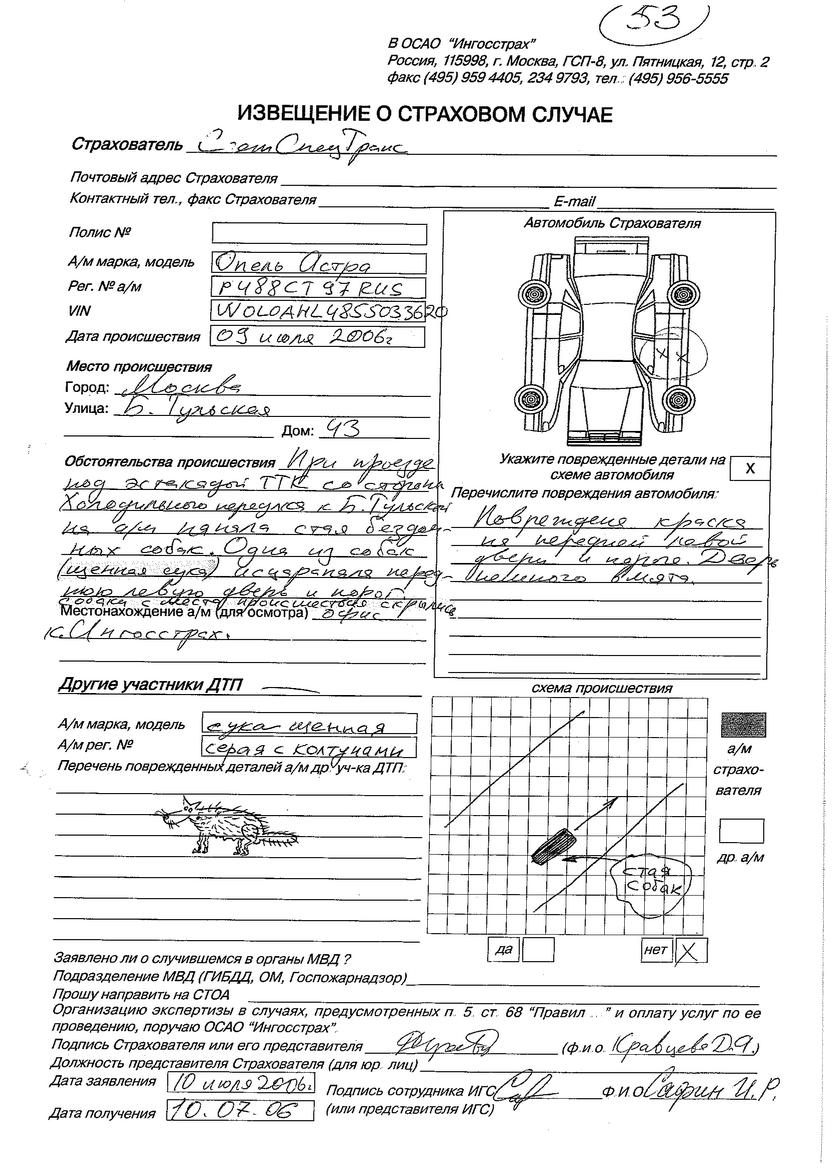 53
В ОСАО "Ингосстрах"
Россия, 115998, г. Москва, ГСП-8, ул. Пятницкая, 12, стр. 2
факс (495) 959 4405, 234 9793, тел.: (495) 956-5555
ИЗВЕЩЕНИЕ О СТРАХОВОМ СЛУЧАЕ
Страхователь СпецТранс
Почтовый адрес Страхователя
Контактный тел., факс Страхователя E-mail
Полис №
А/м марка, модель Опель Астра
Рег. № а/м Р488СТ 97 RUS
VIN W0L0AHL4855033620
Дата происшествия 09 июля 2006г
Место происшествия
Город: Москва
Улица: Б. Тульская
Дом: 43
Обстоятельства происшествия При проезде
под эстакадой ТТК со стороны
Холодильного переулка к Б. Тульской
на а/м напала стая бездом-
ных собак. Одна из собак
(щенная сука) исцарапала перед-
нюю левую дверь и порог.
собаки с места происшествия скрылись
Местонахождение а/м (для осмотра) офис
к. Ингосстрах.
Автомобиль Страхователя
X X
Укажите поврежденные детали на
схеме автомобиля X
Перечислите повреждения автомобиля:
Повреждена краска
на передней левой
двери и пороге. Дверь
немного вмята.
Другие участники ДТП —
А/м марка, модель сука щенная
А/м рег. № серая с колтунами
Перечень поврежденных деталей а/м др. уч-ка ДТП:
схема происшествия
стая
собак
а/м
страхо-
вателя
др. а/м
да нет X
Заявлено ли о случившемся в органы МВД ?
Подразделение МВД (ГИБДД, ОМ, Госпожарнадзор)
Прошу направить на СТОА
Организацию экспертизы в случаях, предусмотренных п. 5. ст. 68 "Правил ..." и оплату услуг по ее
проведению, поручаю ОСАО "Ингосстрах".
Подпись Страхователя или его представителя (ф.и.о. Кравцова Д.Я.)
Должность представителя Страхователя (для юр. лиц)
Дата заявления 10 июля 2006г. Подпись сотрудника ИГС Ф.И.О Сафин И.Р.
Дата получения 10.07.06 (или представителя ИГС)